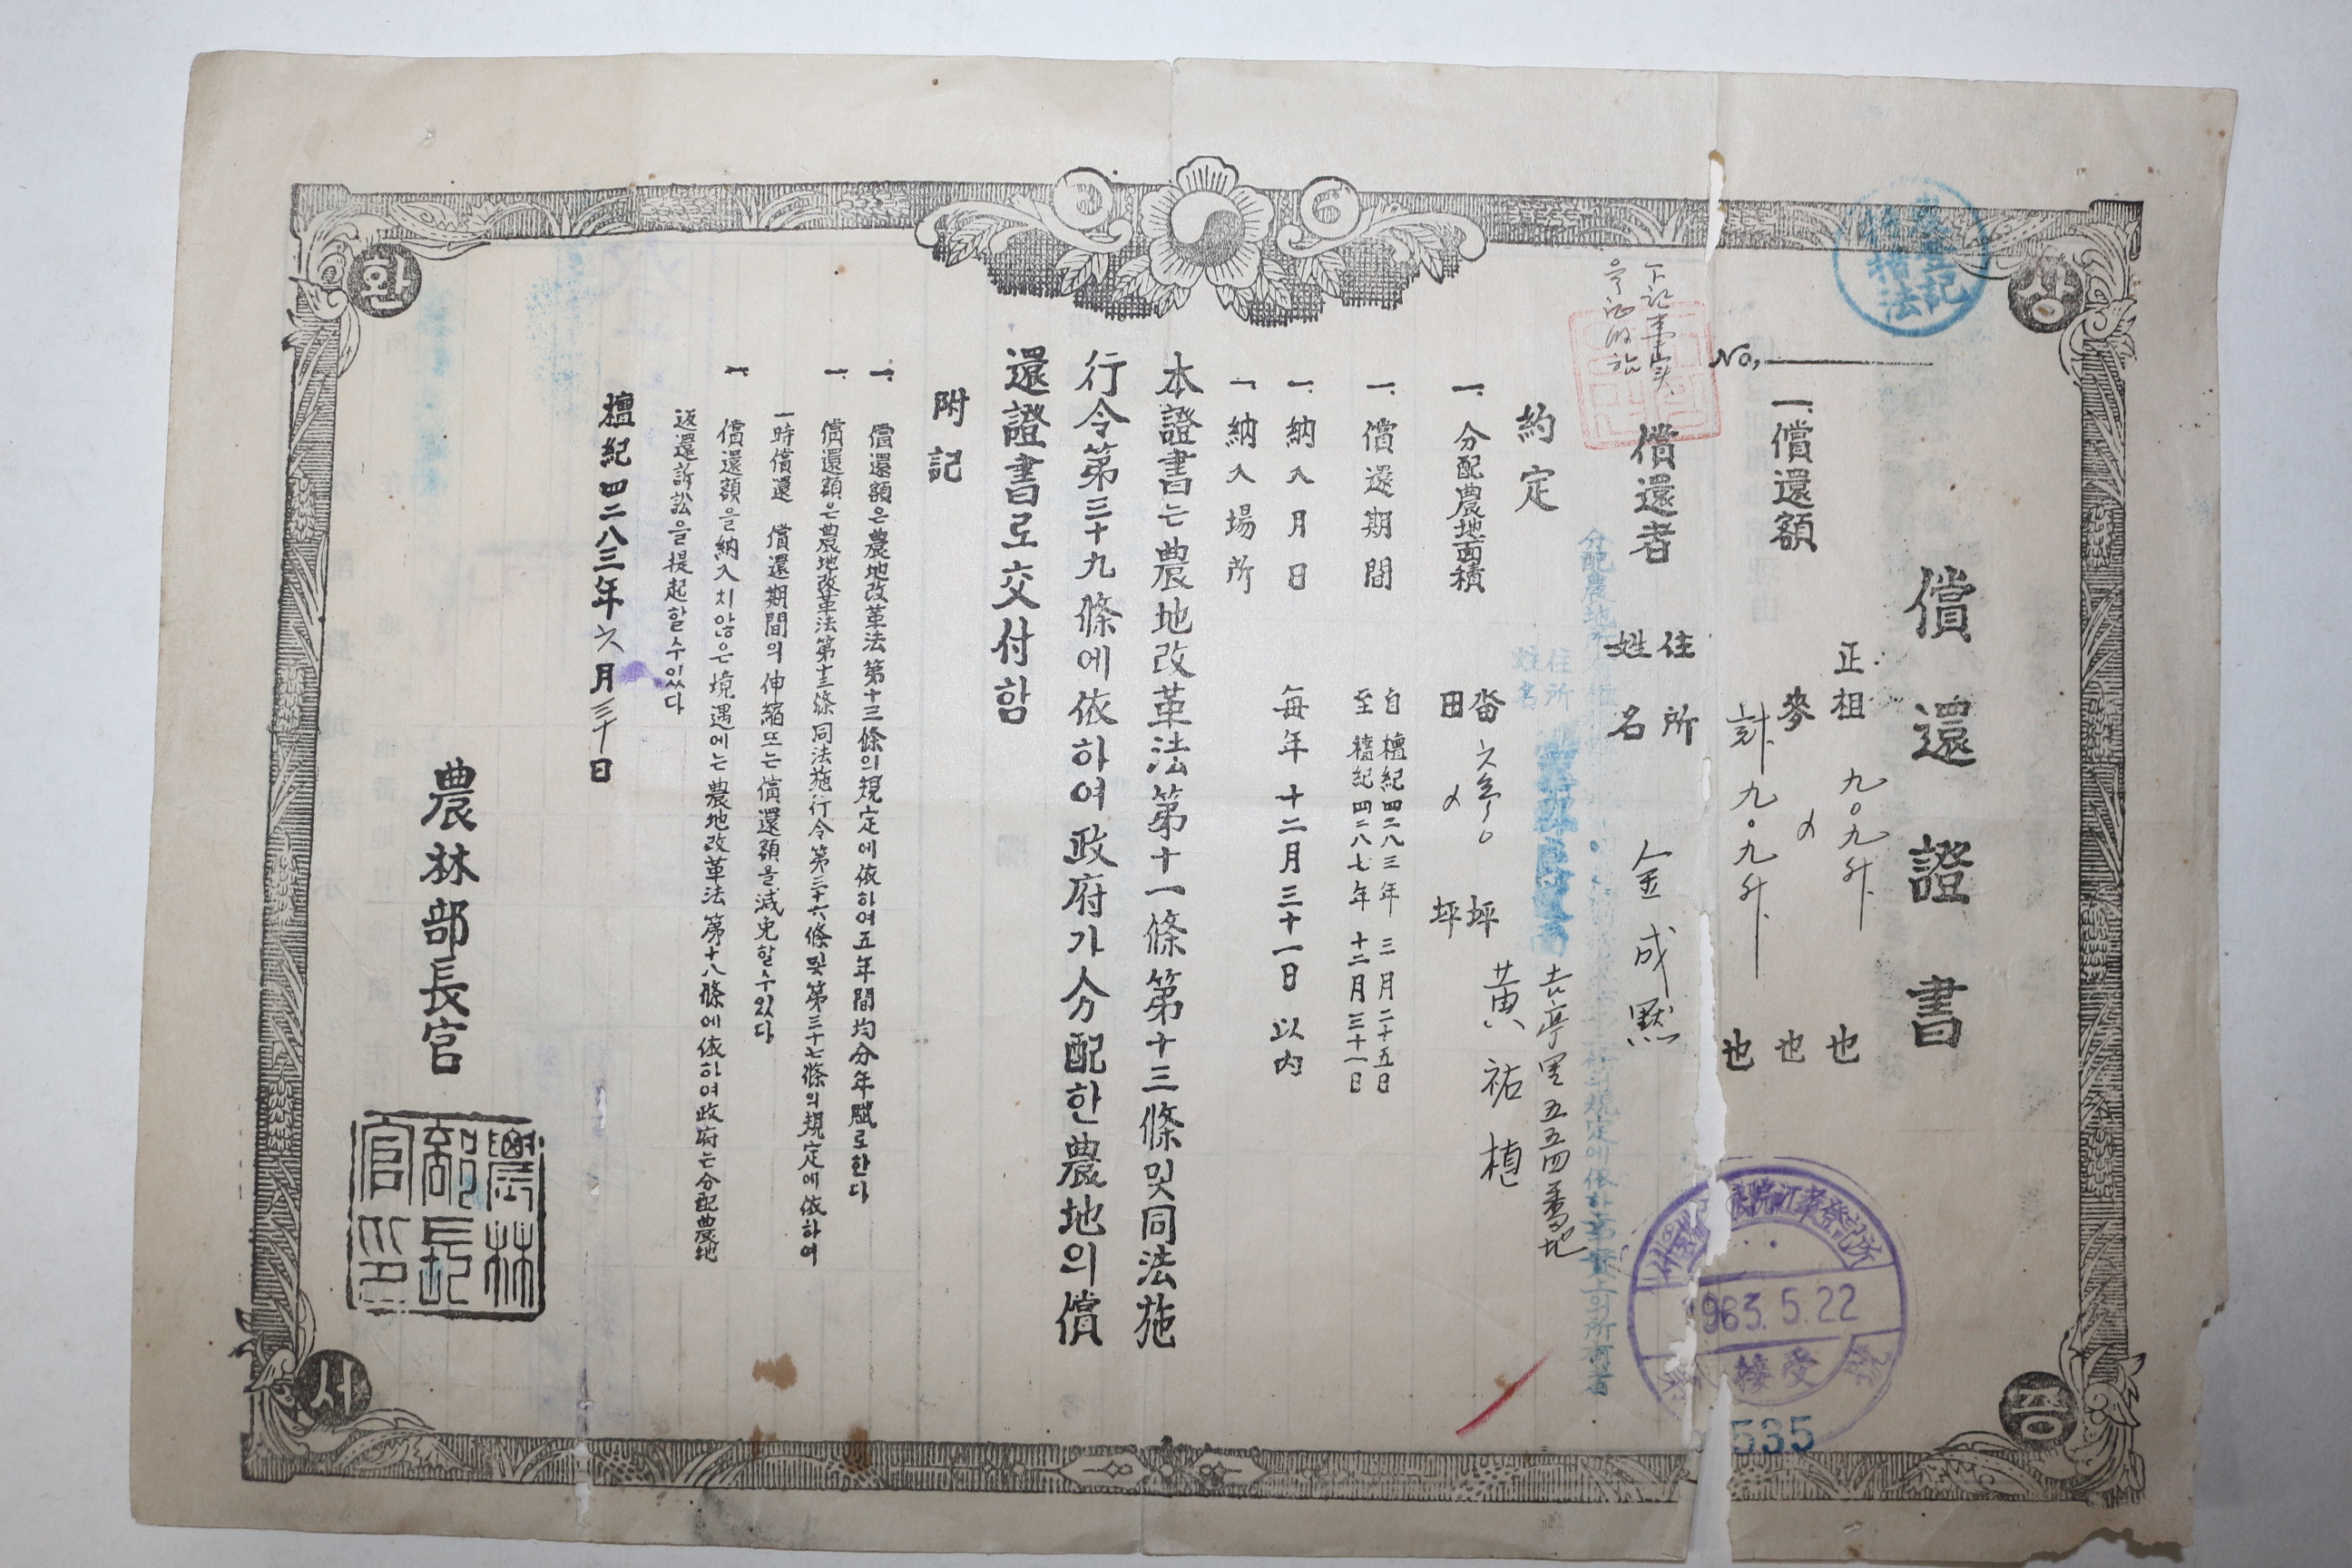 상
환
증
서
償還證書
No.
一. 償還額
正租 九〇九升 也
麥 〃 也
計 九〇九升 也
償還者
住所
姓名 金成黙
約定
住所
姓名
吉亭里 五五四番地
黃祐植
一. 分配農地面積
畓 坪
田 〃 坪
一. 償還期間
自檀紀四二八三年 三月二十五日
至檀紀四二八七年 十二月三十一日
一. 納入月日 每年十二月三十一日以內
一. 納入場所
本證書는農地改革法第十一條第十三條및同法施
行令第三十九條에依하여政府가分配한農地의償
還證書로交付함
附記
一. 償還額은農地改革法第十三條의規定에依하여五年間均分年賦로한다
一. 償還額은農地改革法第十三條同法施行令第三十六條및第三十七條의規定에依하여
一時償還 償還期間의伸縮또는償還額을減免할수있다
一. 償還額을納入치않은境遇에는農地改革法第十八條에依하여政府는分配農地
返還訴訟을提起할수있다
檀紀四二八三年六月三十日
農林部長官
農林部長官印
法院江華登記所
1963.5.22
接受
535